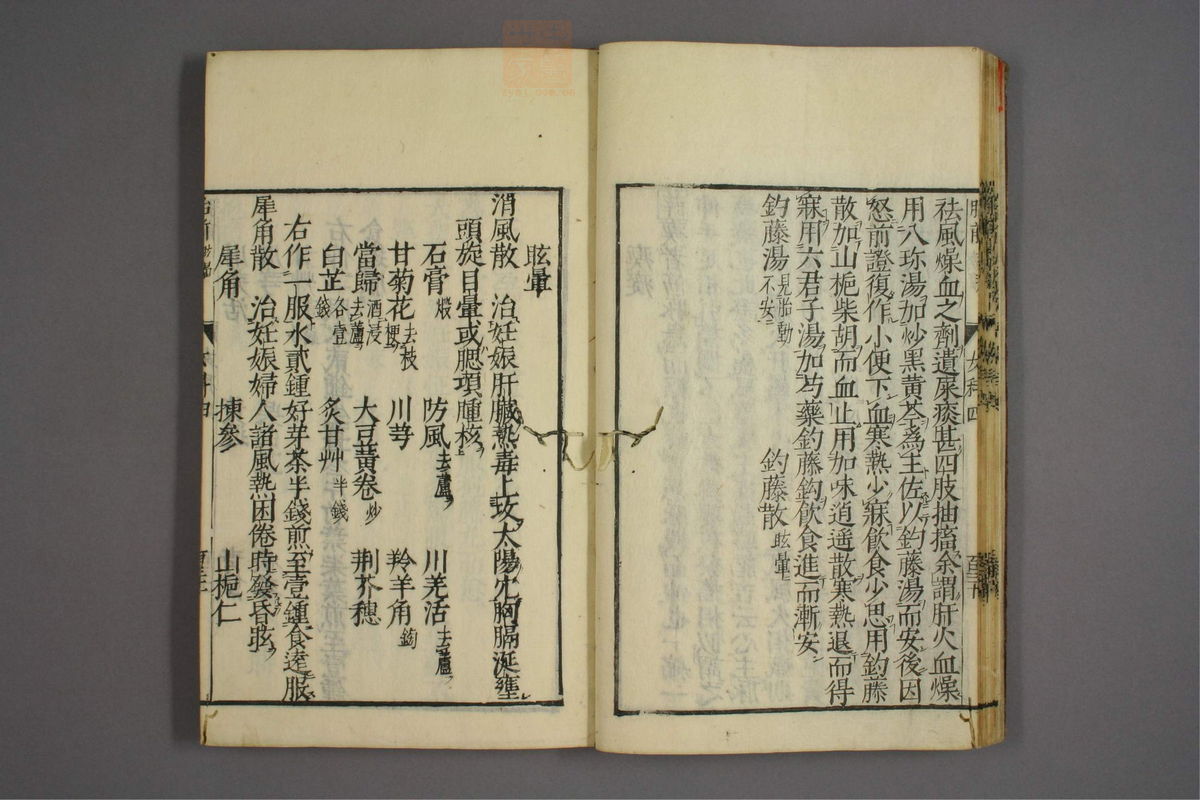 祛風燥血之劑遺尿痰甚四肢抽搐余謂肝火血燥
用八珍湯加炒黑黃芩爲主佐以釣藤湯而安後因
怒前證復作小便下血寒熱少寐飲食少思用釣藤
散加山梔柴胡而血止用加味逍遥散寒熱退而得
寐用六君子湯加芍藥釣藤鈎飲食進而漸安
釣藤湯見胎動不安 釣藤散眩暈
女科四
眩暈
消風散 治妊娠肝臟熱毒上攻太陽穴胸膈涎壅
頭旋目暈或腮項腫核
石膏煅 防風去蘆 川羌活去蘆
甘菊花去枝梗 川芎 羚羊角鎊
當歸去蘆酒浸 大豆黃卷炒 荆芥穗
白芷各壹錢 炙甘艸半錢
右作一服水貳鍾好芽茶半錢煎至壹鍾食遠服
犀角散 治妊娠婦人諸風熱困倦時發昏眩
犀角 揀參 山梔仁